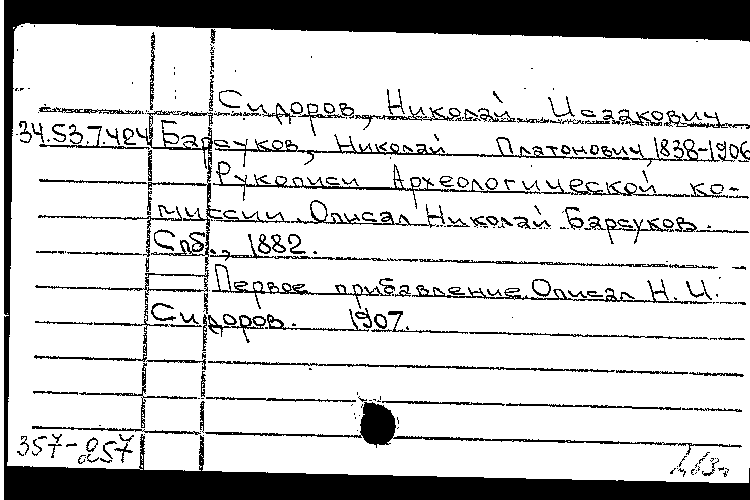 Сидоров, Николай Исаакович
34.53.7.424 Барсуков, Николай Платонович, 1838-1906
Рукописи Археологической ко-
миссии. Описал Николай Барсуков.
Спб., 1882.
Первое прибавление. Описал Н. И.
Сидоров. 1907.
357-257